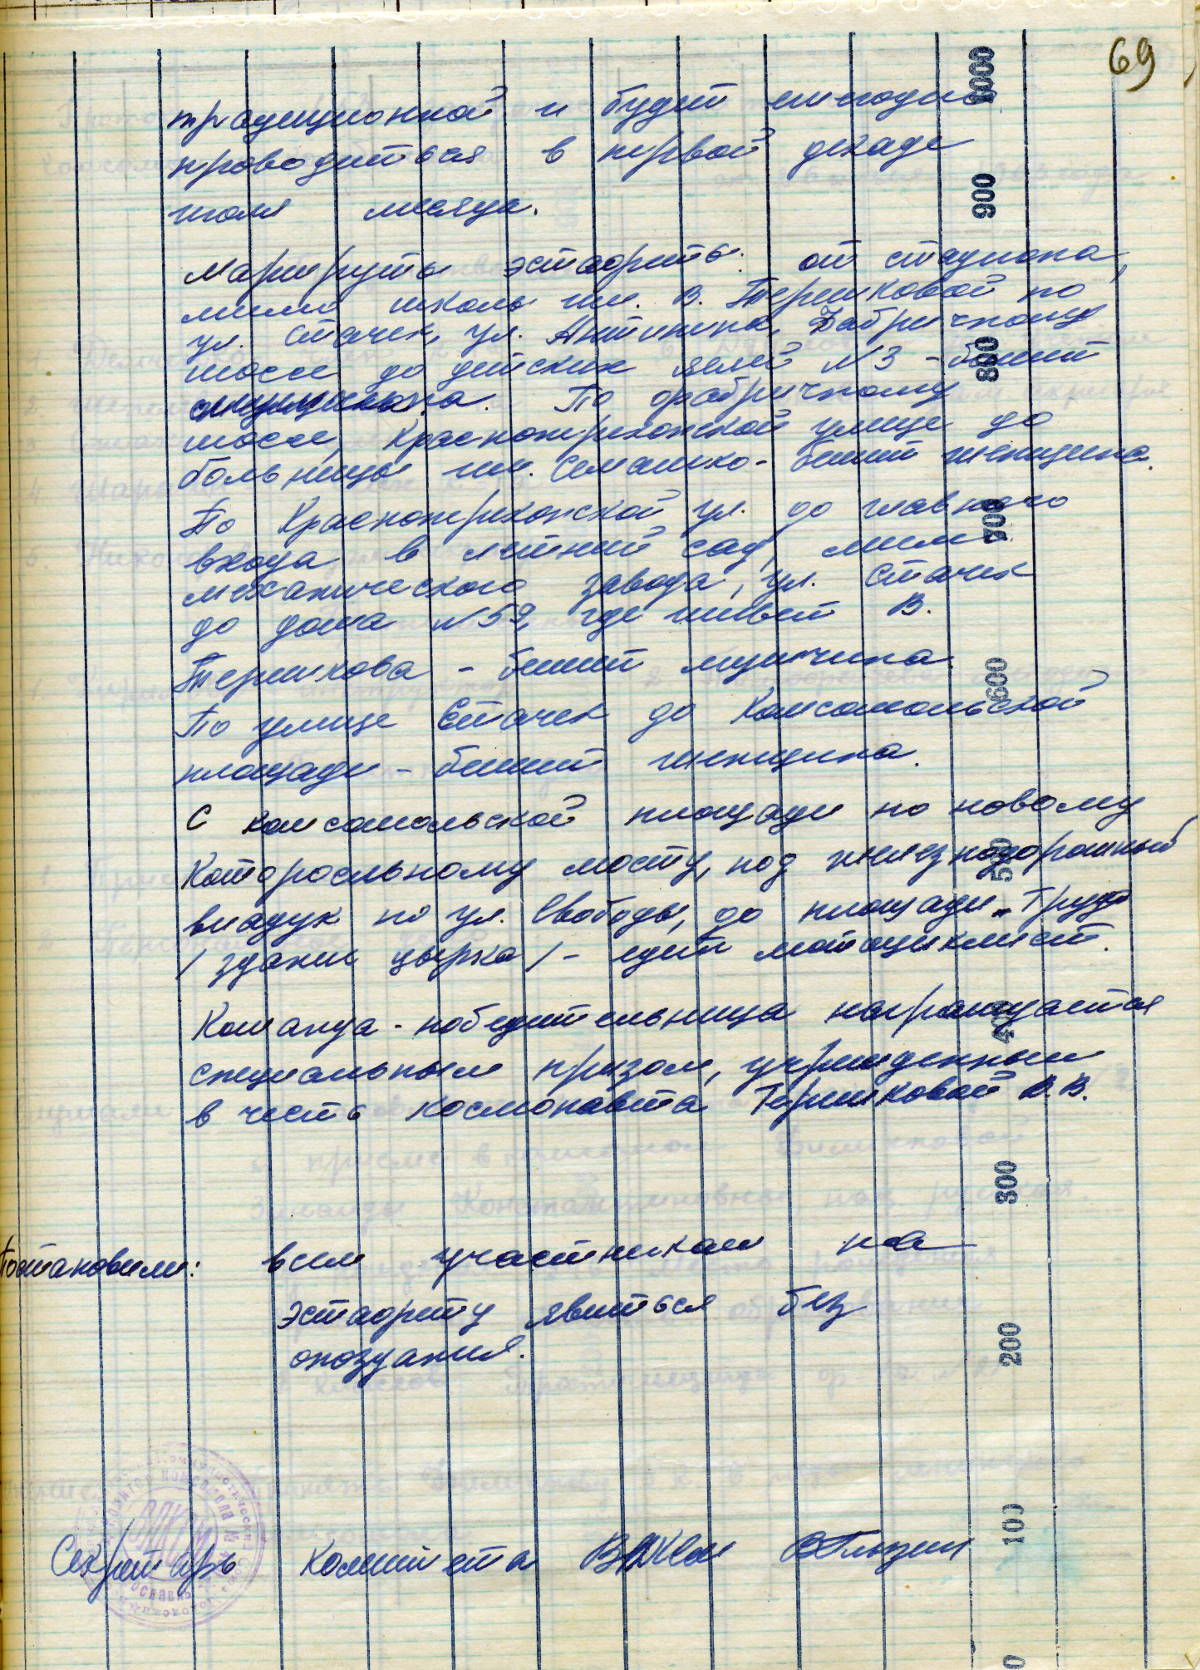 69
традиционной и будет ежегодно
проводиться в первой декаде
июля месяца.
Маршруты эстафеты: от стадиона,
мимо школы им. В. Терешковой по
ул. Стачек, ул. Антипина, Фабричному
шоссе до детских яслей №3 – бежит
По фабричному
шоссе, Красноперекопской улице до
больницы им. Семашко - бежит женщина.
По Красноперекопской ул. до главного
входа в летний сад, мимо
механического завода, ул. Стачек
до дома №59, где живет В.
Терешкова – бежит мужчина.
По улице Стачек до Комсомольской
площади – бежит женщина.
С комсомольской площади по новому
Которосльному мосту, под железнодорожный
виадук по ул. Свободы, до площади „Труда
/здание цырка/ – едет мотоциклист.
Команда - победительница награждается
специальным призом, учрежденным
в честь космонавта Терешковой В.В.
Постановили: всем участникам на
эстафету явиться без
опоздания.
Секретарь комитета ВЛКСМ
1000
900
800
700
600
500
400
300
200
100
0